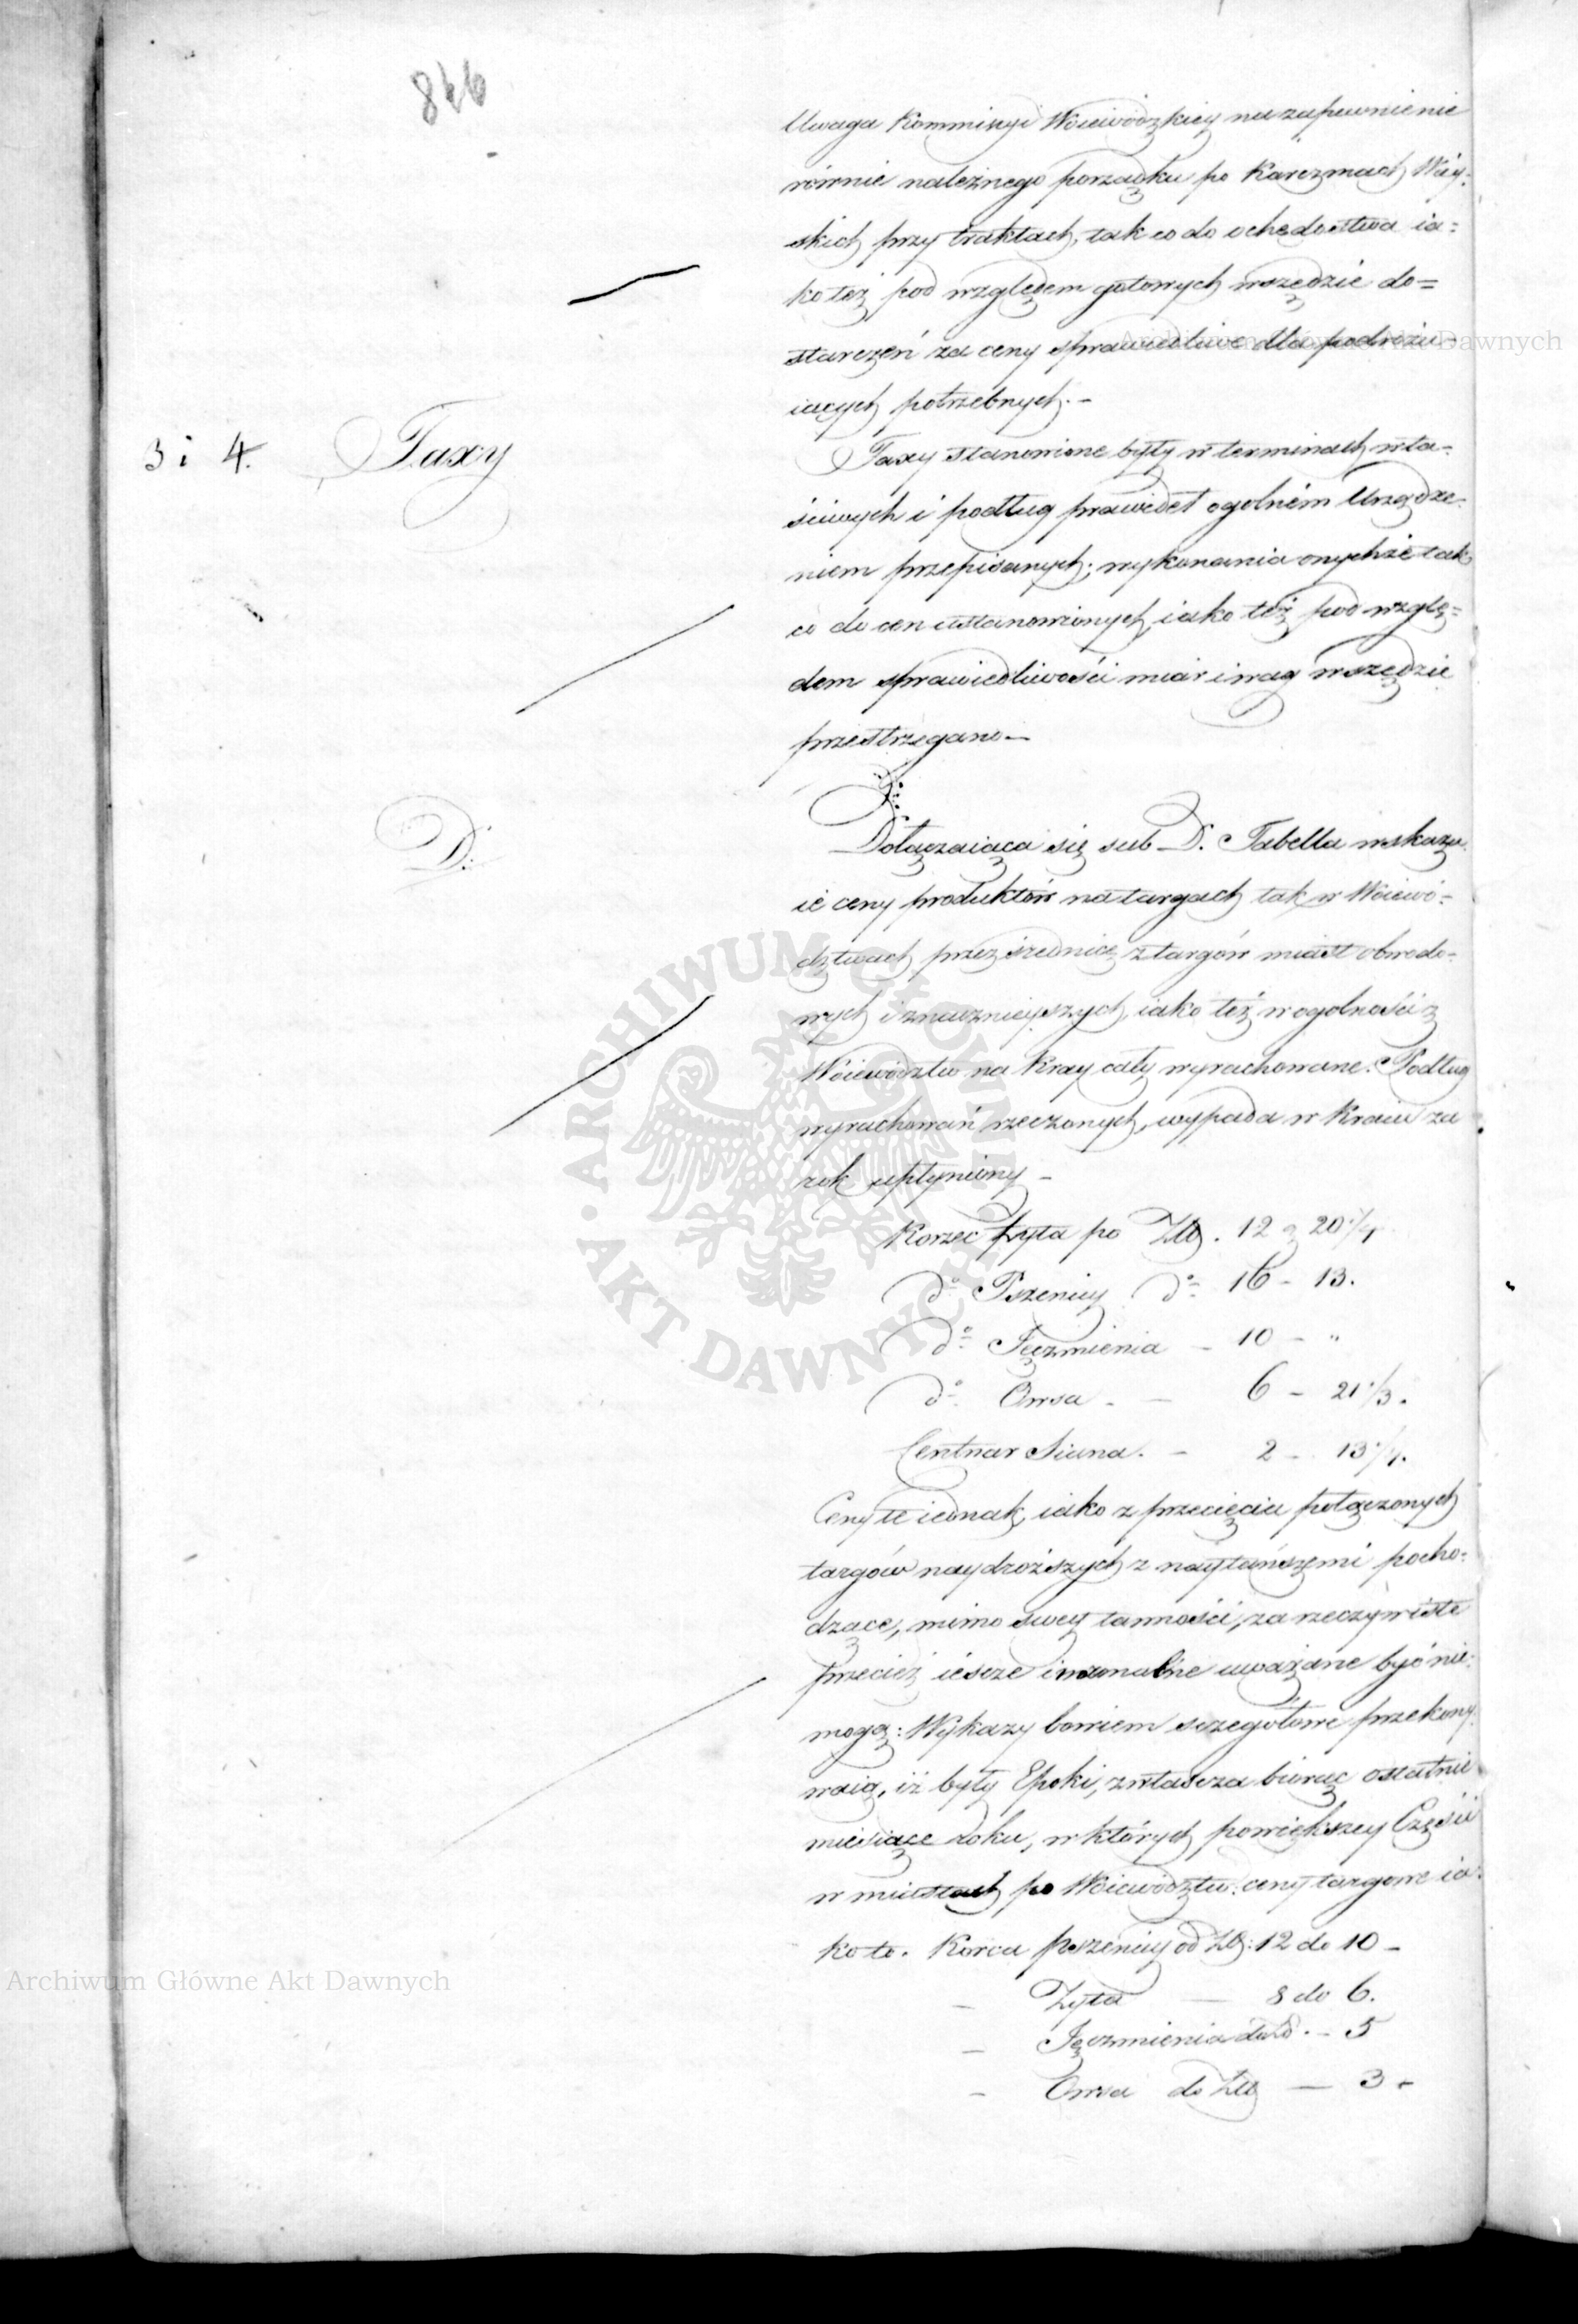 846
Uwaga Kommissyi Woiewodzkiey na zapewnienie
równie należnego porządku po Karczmach Wiey:
skich przy traktach, tak co do ochędostwa ia:
ko też pod względem gotowych wszędzie do=
starczeń za ceny sprawiedliwe dla podróżu-
iących potrzebnych.-
3 i 4. Taxy
Taxy stanowione były w terminach wła-
ściwych i podług prawideł ogolném Urządze-
niem przepisanych; wykonania onychże tak
co do cen ustanowionych, iako też pod wzglę=
dem sprawiedliwości miar i wag wszędzie
przestrzegano-
D:
D:
Dołączaiąca się sub D. Tabella wskazu-
ie ceny produktów na targach tak w Woiewó-
dztwach przez średnią z targów miast obwodo-
wych i znacznieyszych, iako też w ogolności z
Woiewództw na Kray cały wyrachowane. Podług
wyrachowań rzeczonych, wypada w Kraiu za
rok upłyniony -
Korzec Żyta po Złł. 12 g 20 1/4
do Pszenicy do 16 - 13.
do Jęczmienia - 10 - "
do Owsa - - 6 - 21 1/3.
Centnar Siana. - 2 - 13 1/4.
Ceny te iednak, iako z przecięcia połączonych
targów naydroższych z naytańszemi pocho-
dzące, mimo swey tanności, za rzeczywiste
przecież ieszcze i normalne uważane być nie-
mogą: Wykazy bowiem szczegółowe przekony-
waią, iż były Epoki, zwłaszcza biorąc ostatnie
miesiące roku, w których powiększey Części
w miastach po Woiewództw: ceny targowe ia-
ko to. Korca pszenicy od Złł: 12 do 10 -
- Żyta - 8 do 6.
- Jęczmienia do - 5
- Owsa do Złł - 3 -
Archiwum Główne Akt Dawnych
ARCHIWUM GŁÓWNE · AKT DAWNYCH
Archiwum Główne Akt Dawnych